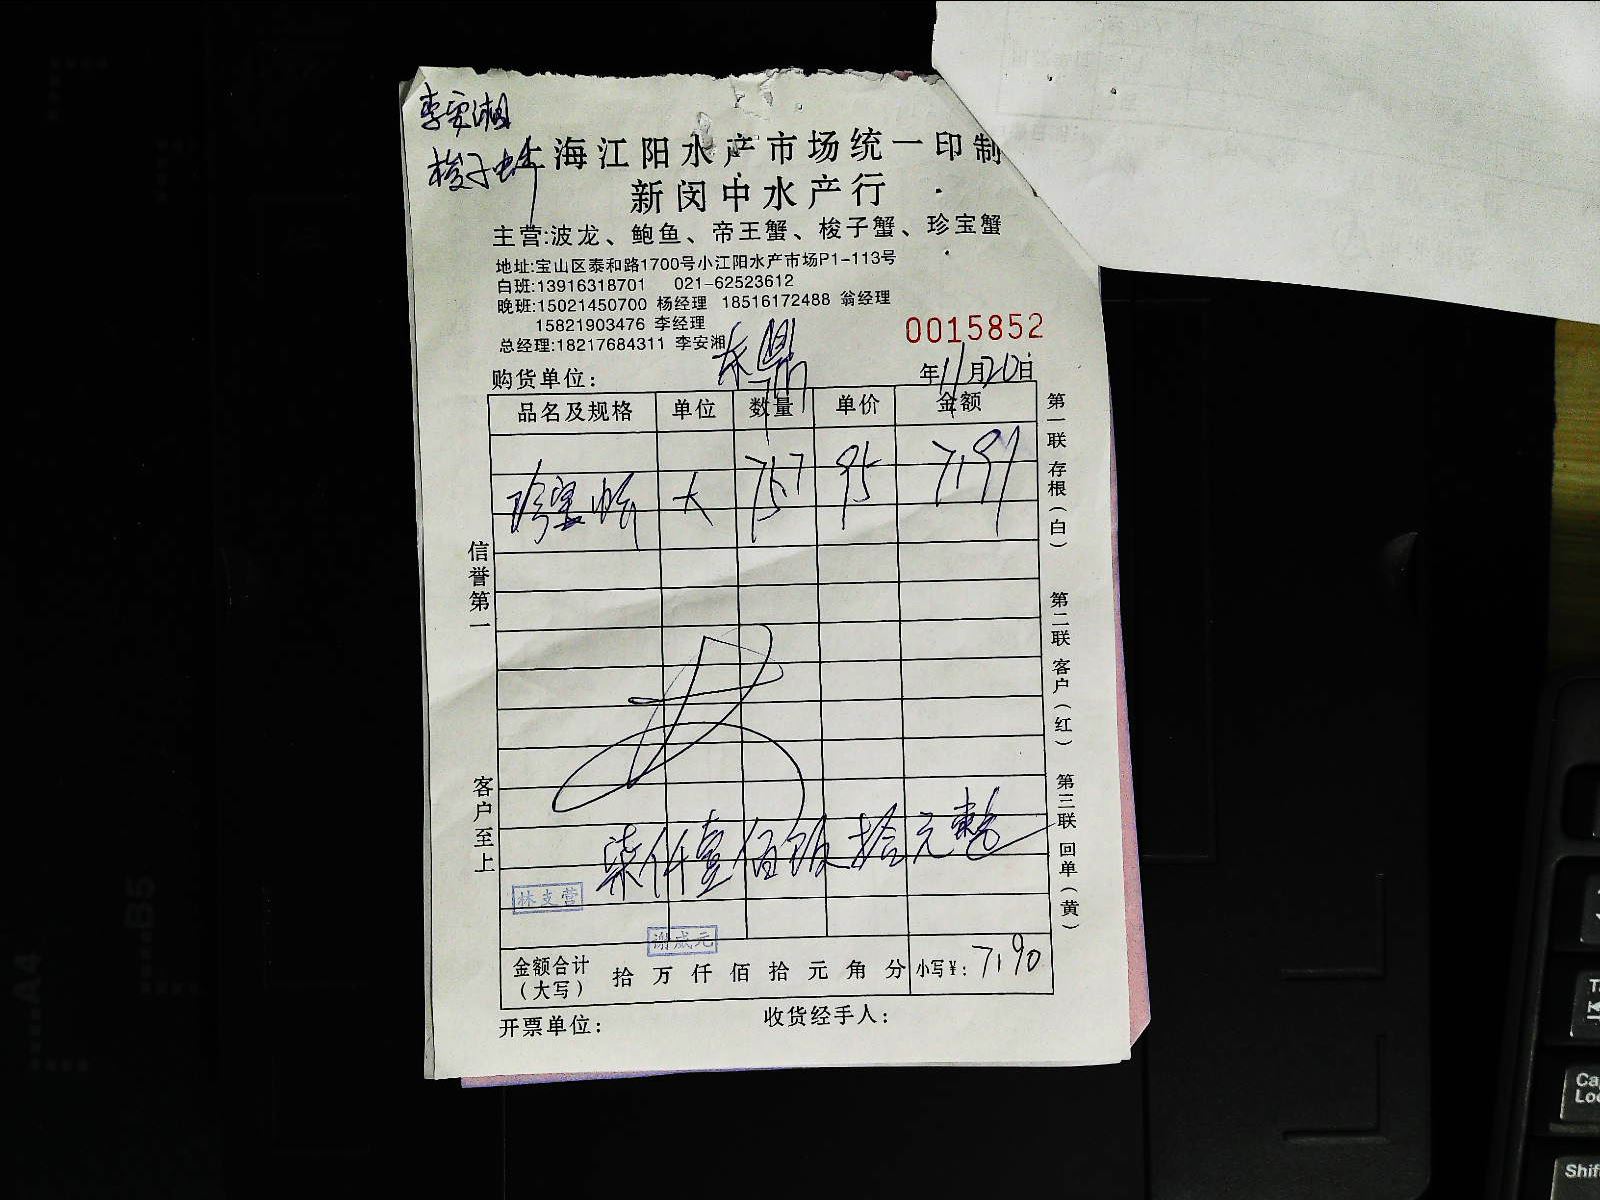 李安湘
梭子
上海江阳水产市场统一印制
新闵中水产行
主营:波龙、鲍鱼、帝王蟹、梭子蟹、珍宝蟹
地址:宝山区泰和路1700号小江阳水产市场P1-113号
白班:13916318701 021-62523612
晚班:15021450700 杨经理 18516172488 翁经理
15821903476 李经理
总经理:18217684311 李安湘
0015852
购货单位: 年11月20日
品名及规格 单位 数量 单价 金额
珍宝 大 75.7 95 7191
信誉第一
客户至上
第一联 存根(白)
第二联 客户(红)
第三联 回单(黄)
柒仟壹佰 拾元整
林支营
谢成元
金额合计(大写) 拾 万 仟 佰 拾 元 角 分 小写¥: 7190
开票单位: 收货经手人: